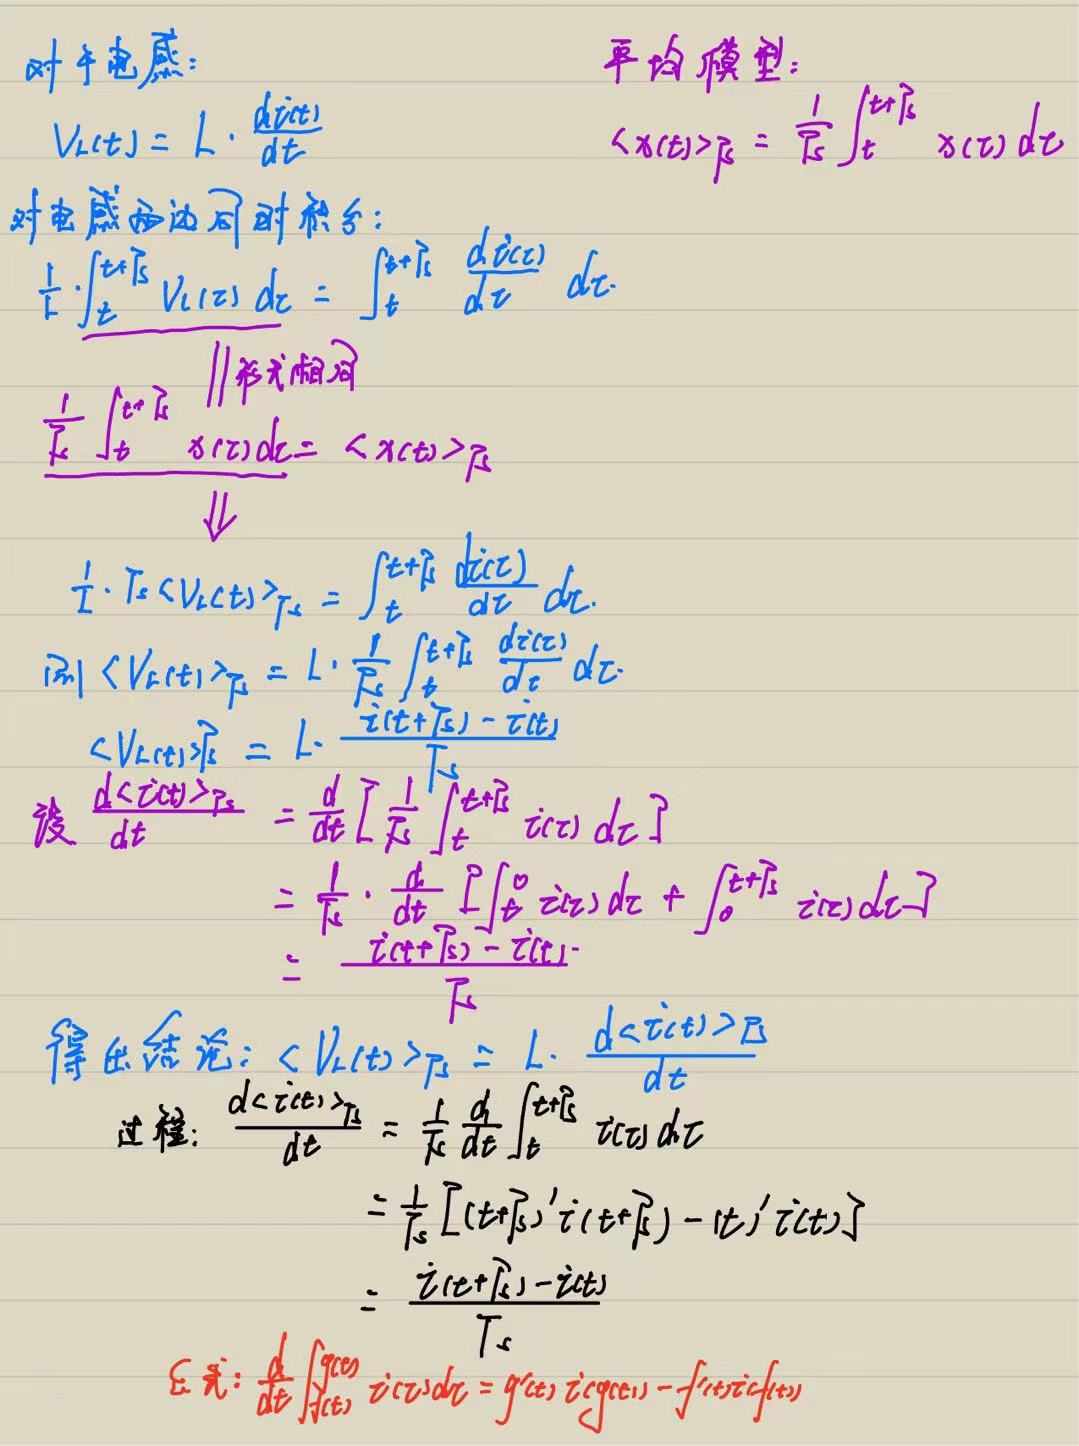 对于电感:
V_L(t) = L · di(t)/dt
平均模型:
<x(t)>_Ts = 1/Ts ∫_t^{t+Ts} x(τ) dτ
对电感两边同时积分:
1/L · ∫_t^{t+Ts} V_L(τ) dτ = ∫_t^{t+Ts} di(τ)/dτ dτ.
|| 形式相同
1/Ts ∫_t^{t+Ts} x(τ) dτ = <x(t)>_Ts
⇓
1/L · Ts <V_L(t)>_Ts = ∫_t^{t+Ts} di(τ)/dτ dτ.
则 <V_L(t)>_Ts = L · 1/Ts ∫_t^{t+Ts} di(τ)/dτ dτ.
<V_L(t)>_Ts = L · (i(t+Ts) - i(t))/Ts
设 d<i(t)>_Ts/dt = d/dt [1/Ts ∫_t^{t+Ts} i(τ) dτ]
= 1/Ts · d/dt [∫_t^0 i(τ) dτ + ∫_0^{t+Ts} i(τ) dτ]
= (i(t+Ts) - i(t))/Ts
得出结论: <V_L(t)>_Ts = L · d<i(t)>_Ts/dt
过程: d<i(t)>_Ts/dt = 1/Ts d/dt ∫_t^{t+Ts} i(τ) dτ
= 1/Ts [(t+Ts)' i(t+Ts) - (t)' i(t)]
= (i(t+Ts) - i(t))/Ts
公式: d/dt ∫_{f(t)}^{g(t)} i(τ) dτ = g'(t) i(g(t)) - f'(t) i(f(t))